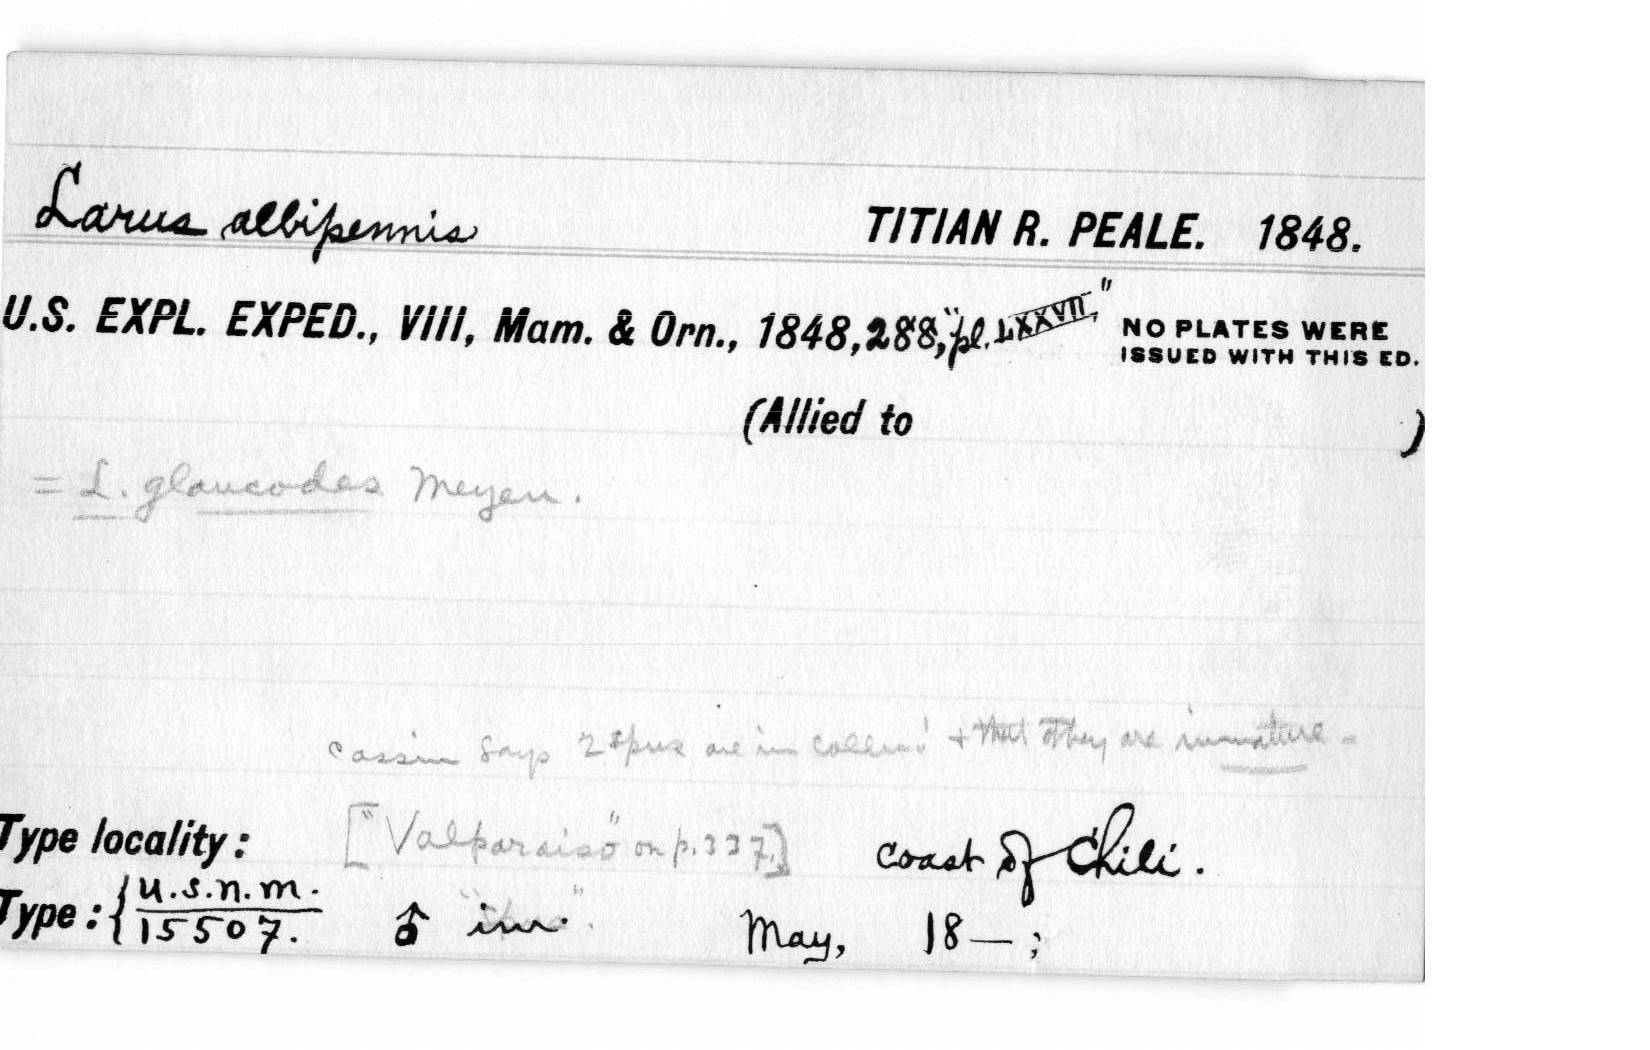 Larus albipennis TITIAN R. PEALE. 1848.
U.S. EXPL. EXPED., VIII, Mam. & Orn., 1848, 288, "pl. LXXVII," NO PLATES WERE
ISSUED WITH THIS ED.
(Allied to )
= L. glaucodes Meyen.
Cassin says 2 are in & that they are immature -
Type locality: ["Valparaiso" on p. 337.] coast of Chili.
Type: { U.S.N.M. ♂ im. May, 18—;
15507.